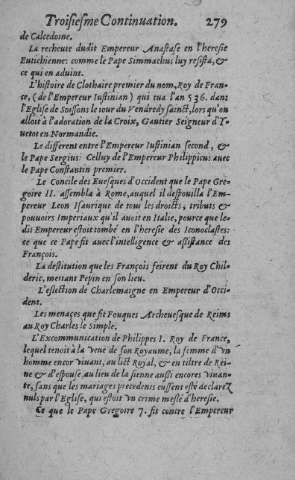 Troisiesme Continuation. 279
de Calcedoine.
La recheute dudit Empereur Anastase en l'heresie
Eutichienne: comme le Pape Simmachus luy resista, &
ce qui en aduint.
L'histoire de Clothaire premier du nom, Roy de Fran-
ce, (de l'Empereur Iustinian) qui tua l'an 536. dans
l'Eglise de Soissons le iour du Vendredy sainct, lors qu'on
alloit à l'adoration de la Croix, Gautier Seigneur d'Y-
uetot en Normandie.
Le different entre l'Empereur Iustinian second, &
le Pape Sergius: Celluy de l'Empereur Philippicus auec
le Pape Constantin premier.
Le Concile des Euesques d'Occident que le Pape Gre-
goire II. assembla à Rome, auquel il despouilla l'Em-
pereur Leon Isaurique de tous les droicts, tributs &
pouuoirs Imperiaux qu'il auoit en Italie, pource que le-
dit Empereur estoit tombé en l'heresie des Iconoclastes:
ce que ce Pape fit auec l'intelligence & assistance des
François.
La destitution que les François feirent du Roy Chil-
deric, mettant Pepin en son lieu.
L'eslection de Charlemaigne en Empereur d'Occi-
dent.
Les menaçes que fit Fouques Archeuesque de Reims
au Roy Charles le Simple.
L'Excommunication de Philippes I. Roy de France,
lequel tenoit à la veuë de son Royaume, la femme d'vn
homme encor viuant, au lict Royal, & en tiltre de Rei-
ne & d'espouse, au lieu de la sienne aussi encores viuan-
te, sans que les mariages precedents eussent esté declarez
nuls par l'Eglise, qui estoit vn crime meslé d'heresie.
Ce que le Pape Gregoire 7. fit contre l'Empereur